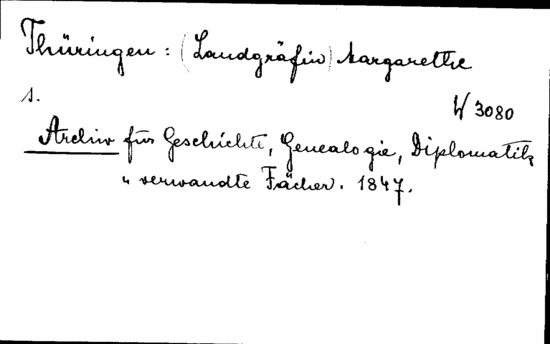 Thüringen : (Landgräfin) Margarethe
s.
W 3080
Archiv für Geschichte, Genealogie, Diplomatik
u verwandte Fächer. 1847.